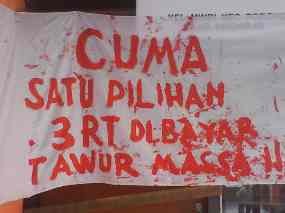 CUMA
SATU PILIHAN
3 RT DI BAYAR
TAWUR MASSA !!